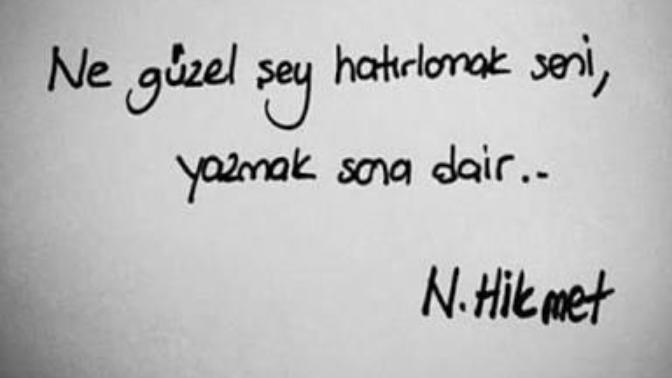 Ne güzel şey hatırlamak seni,
yazmak sana dair..
N. Hikmet